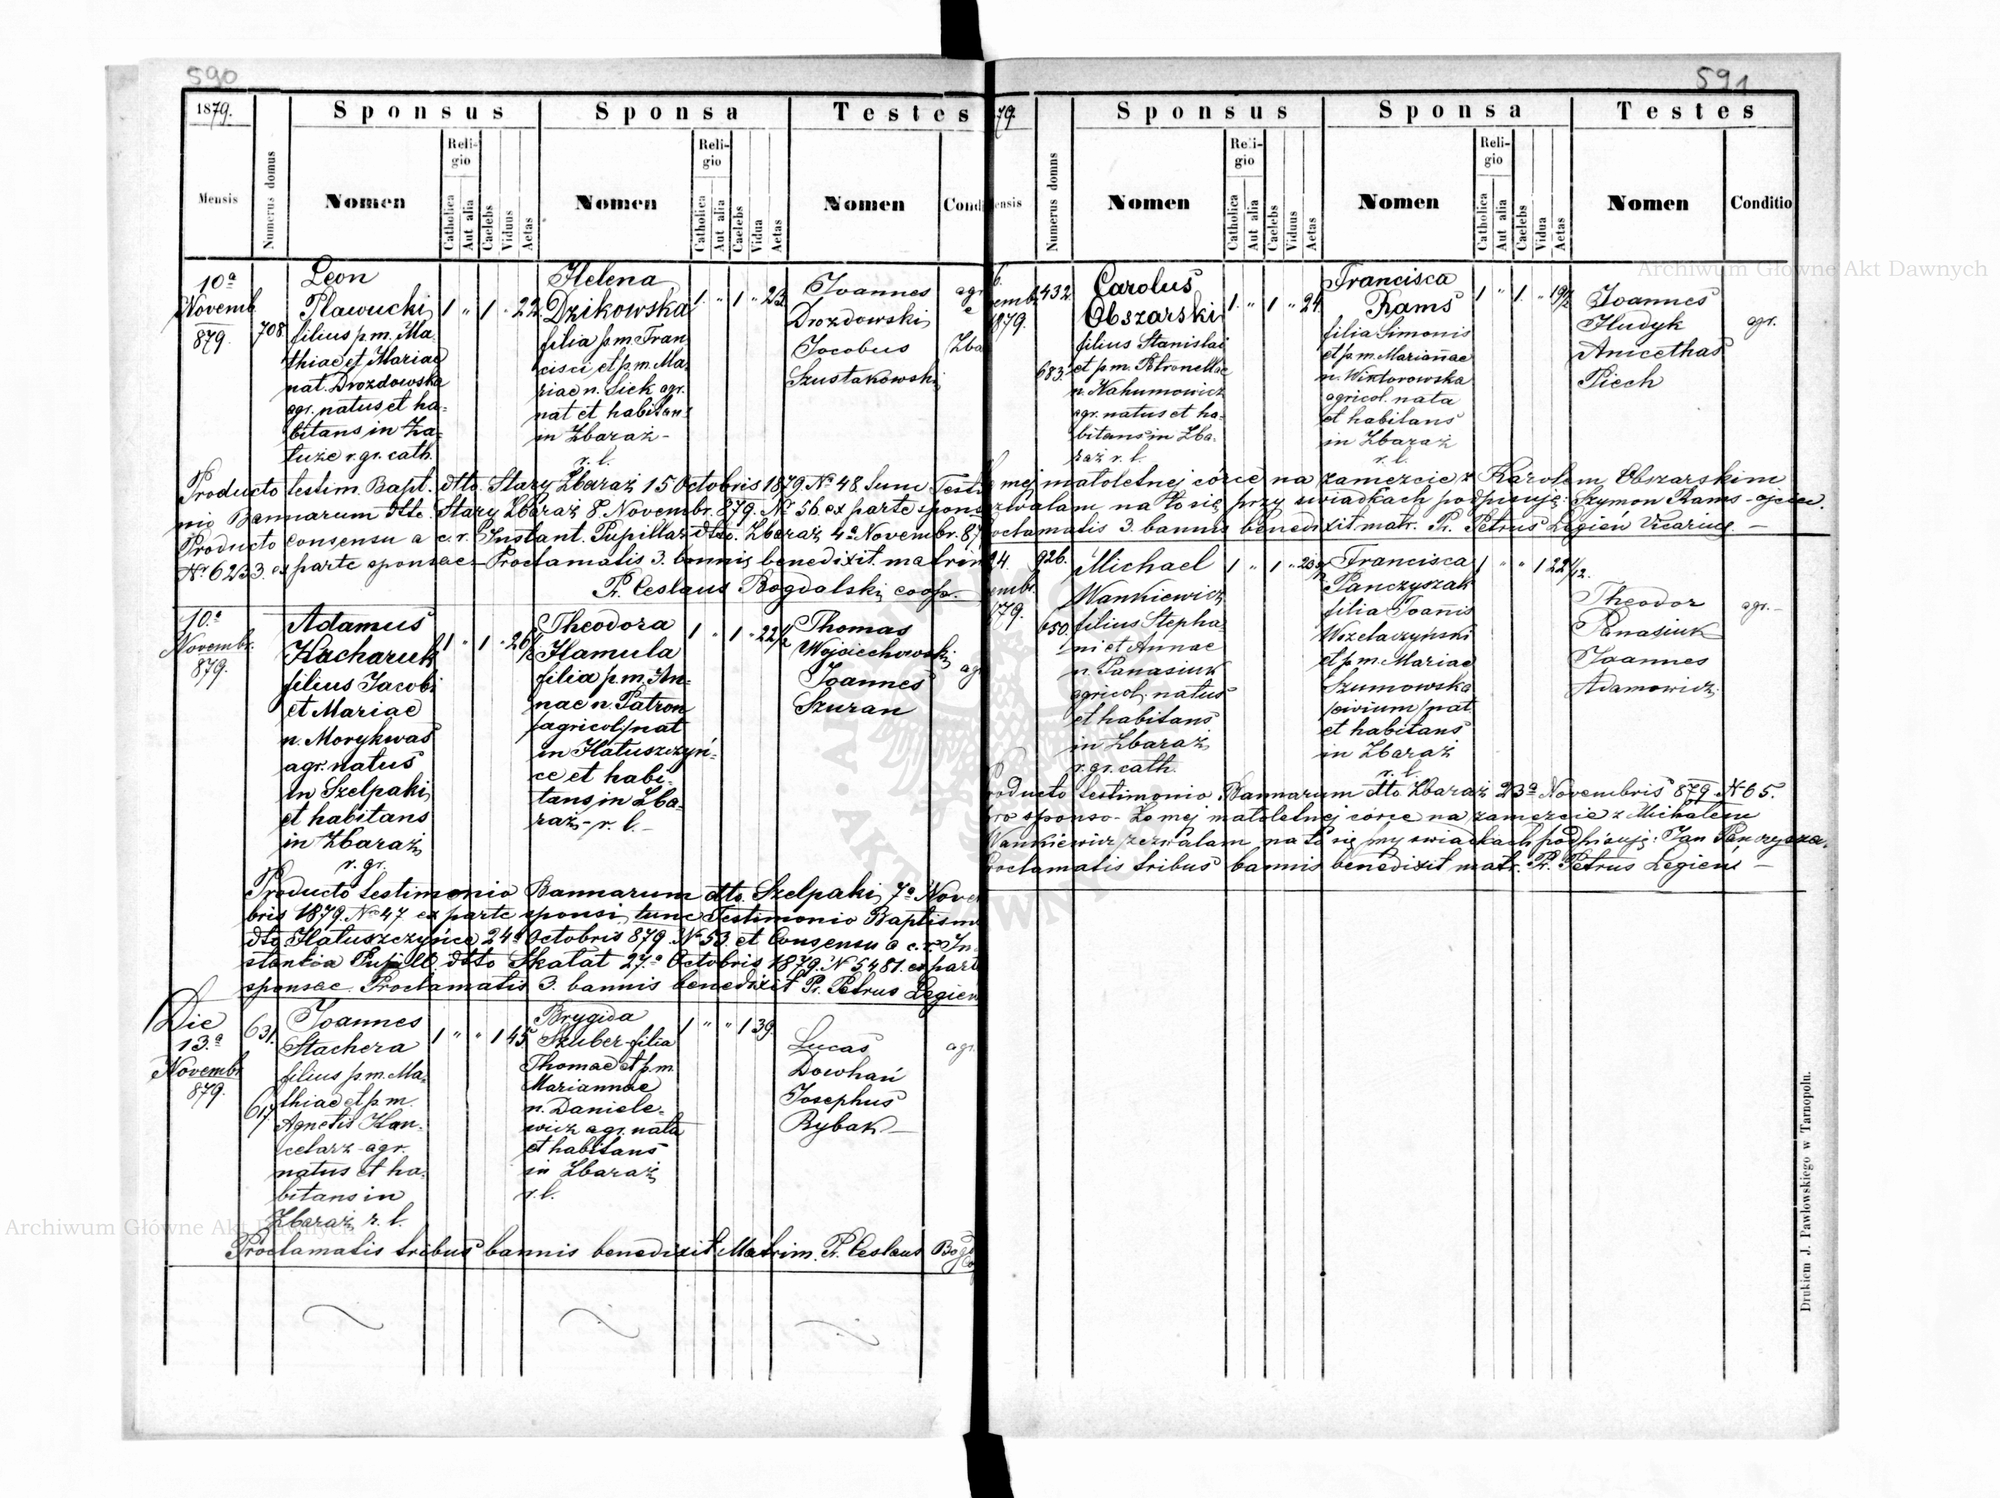 590
1879.
Sponsus
Sponsa
Testes
Mensis
Numerus domus
Nomen
Religio
Catholica
Aut alia
Caelebs
Viduus
Aetas
Nomen
Religio
Catholica
Aut alia
Caelebs
Vidua
Aetas
Nomen
Condi
10ª
Novemb.
879.
708.
Leon
Pławucki
filius p.m. Ma-
thiae et Mariae
nat. Drozdowska
agr. natus et ha-
bitans in Za-
łuże r. gr. cath.
1 " 1 " 22
Helena
Dzikowska
filia p.m. Fran-
cisci et p.m. Ma-
riae n. Sick agr.
nat et habitans
in Zbaraż -
r. l.
1. " 1 " 23.
Joannes
Drozdowski
Jacobus
Szustakowski
agr.
e
Zba
Producto testim. Bapt. dtto. Stary Zbaraż 15 Octobris 1879 Nº 48 tum Testi
nio Bannarum dtto. Stary Zbaraż 8. Novembr. 879. Nº 56. ex parte spons
Producto consensu a c. r. Instant. Pupillar dtto. Zbaraż 4ª Novembr. 87
Nº 6233. ex parte sponsae - Proclamatis 3. bannis benedixit matrim
Pr. Ceslaus Bogdalski coop. -
10.ª
Novembr.
879.
Adamus
Kucharuk
filius Jacobi
et Mariae
n. Morykwas
agr. natus
in Szelpaki
et habitans
in Zbaraż
r. gr.
1 " 1 " 26 1/2
Theodora
Hamula
filia p.m. An-
nae n. Patron
/agricol/ nat
in Hałuszczyń-
ce et habi-
tans in Zba-
raż - r. l. -
1 " 1 " 22 1/2
Thomas
Wojciechowski
Joannes
Szuran
agr
Producto testimonio Bannarum dtto. Szelpaki 7ª Novem
bris 1879. Nº 47 ex parte sponsi, tunc Testimonio Baptism
dto Hałuszczyńce 24ª Octobris 879. Nº 53. et Consensu a c. r. In-
stantia Pupill. dtto Skałat 27.ª Octobris 1879. N 5481. ex part
sponsae. Proclamatis 3. bannis benedixit Pr. Petrus Legień
Die
13.ª
Novembr
879.
631.
617.
Joannes
Stachera
filius p.m. Ma-
thiae et p.m.
Agnetis Kan-
celarz - agr.
natus et ha-
bitans in
Zbaraż r. l.
1 " " 1 45
Brygida
Szuber - filia
Thomae et p.m.
Mariannae
n. Daniele-
wicz agr. nata
et habitans
in Zbaraż
r. l.
1 " " 1 39
Lucas
Dowhań
Josephus
Rybak -
agr.
Proclamatis tribus bannis benedixit Matrim. Pr. Ceslaus Bog
591
79.
Sponsus
Sponsa
Testes
ensis
Numerus domus
Nomen
Religio
Catholica
Aut alia
Caelebs
Viduus
Aetas
Nomen
Religio
Catholica
Aut alia
Caelebs
Vidua
Aetas
Nomen
Conditio
6.
emb.
879.
432.
683.
Carolus
Obszarski
filius Stanislai
et p.m. Petronellae
n. Nahumowicz
agr. natus et ha-
bitans in Zba-
raż r. l.
1. " 1 " 24.
Francisca
Rams
filia Simonis
et p.m. Mariannae
n. Wiktorowska
agricol. nata
et habitans
in Zbaraż
r. l.
1 " 1. " 19 1/2
Joannes
Hudyk
Anicethas
Piech
agr.
mej małoletniej córce na zamęzcie z Karolem Obszarskim
zwalam, na to się przy świadkach podpisuję: Szymon Rams - ojciec.
oclamatis 3. bannis benedixit matr. Pr. Petrus Legień Vicarius. -
24.
embr.
879.
926.
650.
Michael
Wankiewicz
filius Stepha-
ni et Annae
n. Panasiuk
agricol. natus
et habitans
in Zbaraż
r. gr. cath.
1 " 1 "
Francisca
Panczyszak
filia Joannis
et p.m. Mariae
Szumowska
/civium/ nat
et habitans
in Zbaraż
r. l.
1 " " 1 22 1/12.
Theodor
Panasiuk
Joannes
Adamowicz.
agr. -
roducto testimonio Bannarum dtto Zbaraż 23ª Novembris 879 Nº 65.
pro sponso - Że mej małoletniej córce na zamęzcie z Michałem
Wankiewicz zezwalam, na to się przy świadkach podpisuję: Jan Panczysza.
roclamatis tribus bannis benedixit matr. Pr. Petrus Legień -
Drukiem J. Pawłowskiego w Tarnopolu.
Archiwum Główne Akt Dawnych
Archiwum Główne Akt Dawnych